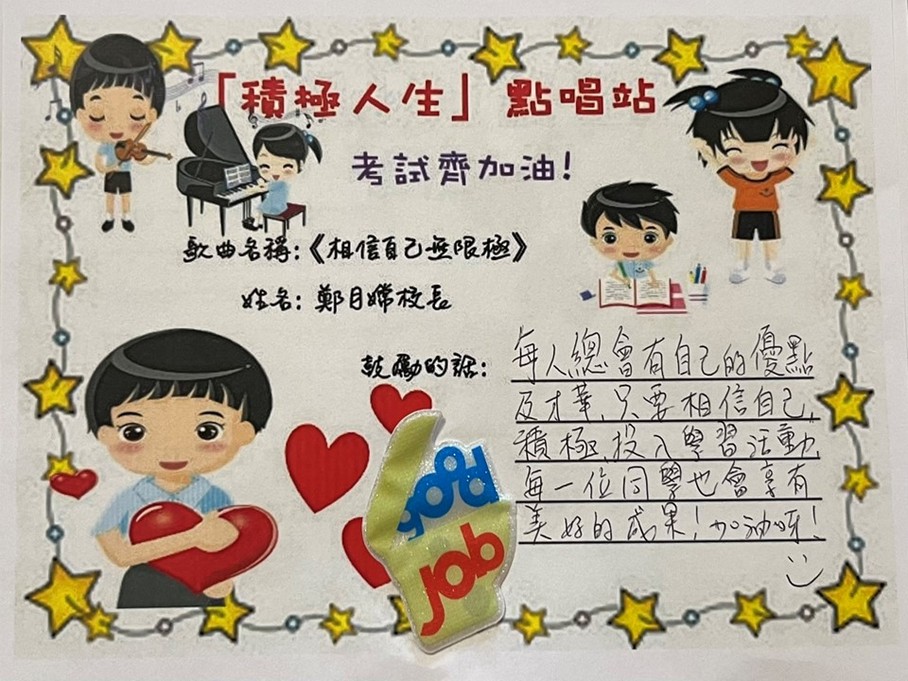 「積極人生」點唱站
考試齊加油！
歌曲名稱：《相信自己無限極》
姓名：鄭月嫦校長
鼓勵的話：
每人總會有自己的優點
及才華，只要相信自己，
積極投入學習活動
每一位同學也會享有
美好的成果！加油呀！
good
job